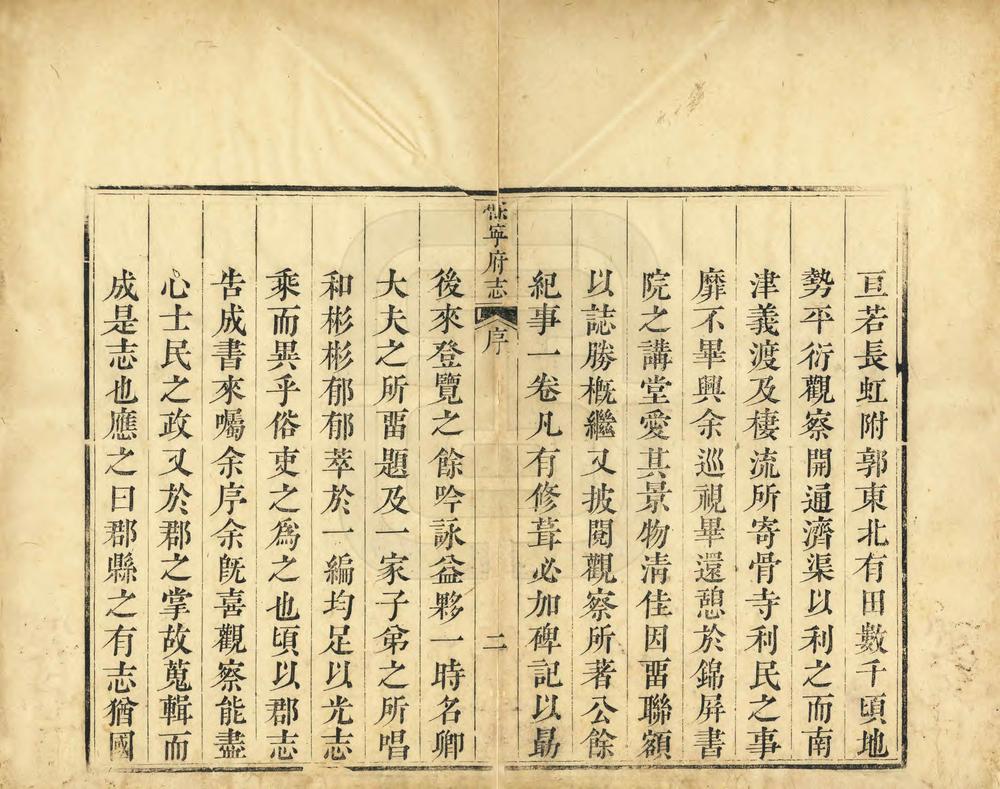 亘若長虹附郭東北有田數千頃地
勢平衍觀察開通濟渠以利之而南
津義渡及棲流所寄骨寺利民之事
靡不畢興余巡視畢還憩於錦屏書
院之講堂愛其景物清佳因畱聯額
以誌勝槪繼又披閱觀察所著公餘
紀事一卷凡有修葺必加碑記以勗
寧府志
序
二
後來登覽之餘吟詠益夥一時名卿
大夫之所畱題及一家子弟之所唱
和彬彬郁郁萃於一編均足以光志
乘而異乎俗吏之爲之也頃以郡志
告成書來囑余序余旣喜觀察能盡
心士民之政又於郡之掌故蒐輯而
成是志也應之曰郡縣之有志猶國